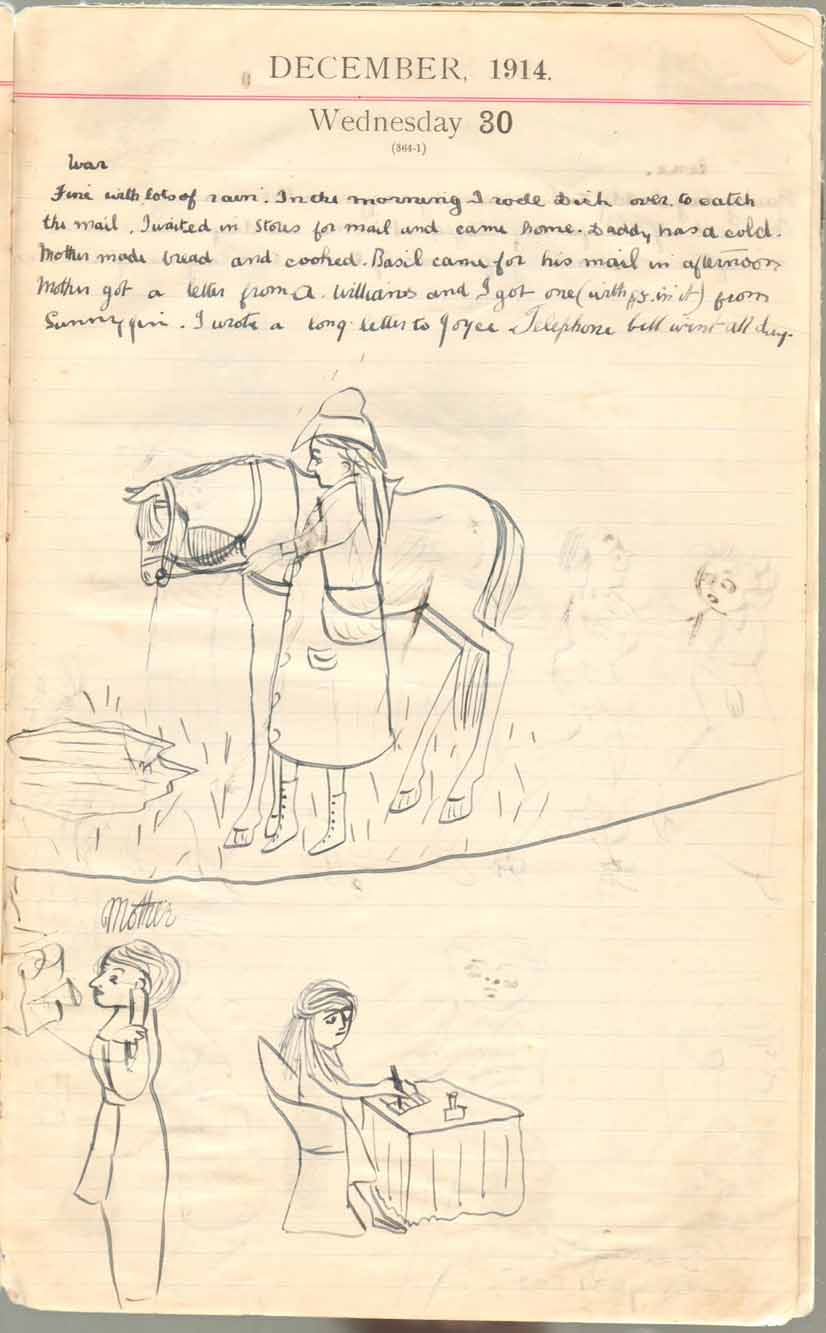 DECEMBER, 1914.
Wednesday 30
(364-1)
War
Fine with lots of rain. In the morning I rode Dick over to catch
the mail. I waited in Stores for mail and came home. Daddy has a cold.
Mother made bread and cooked. Basil came for his mail in afternoon
Mother got a letter from A. Williams and I got one (with in it) from
. I wrote a long letter to Joyce. Telephone bell went all day.
Mother